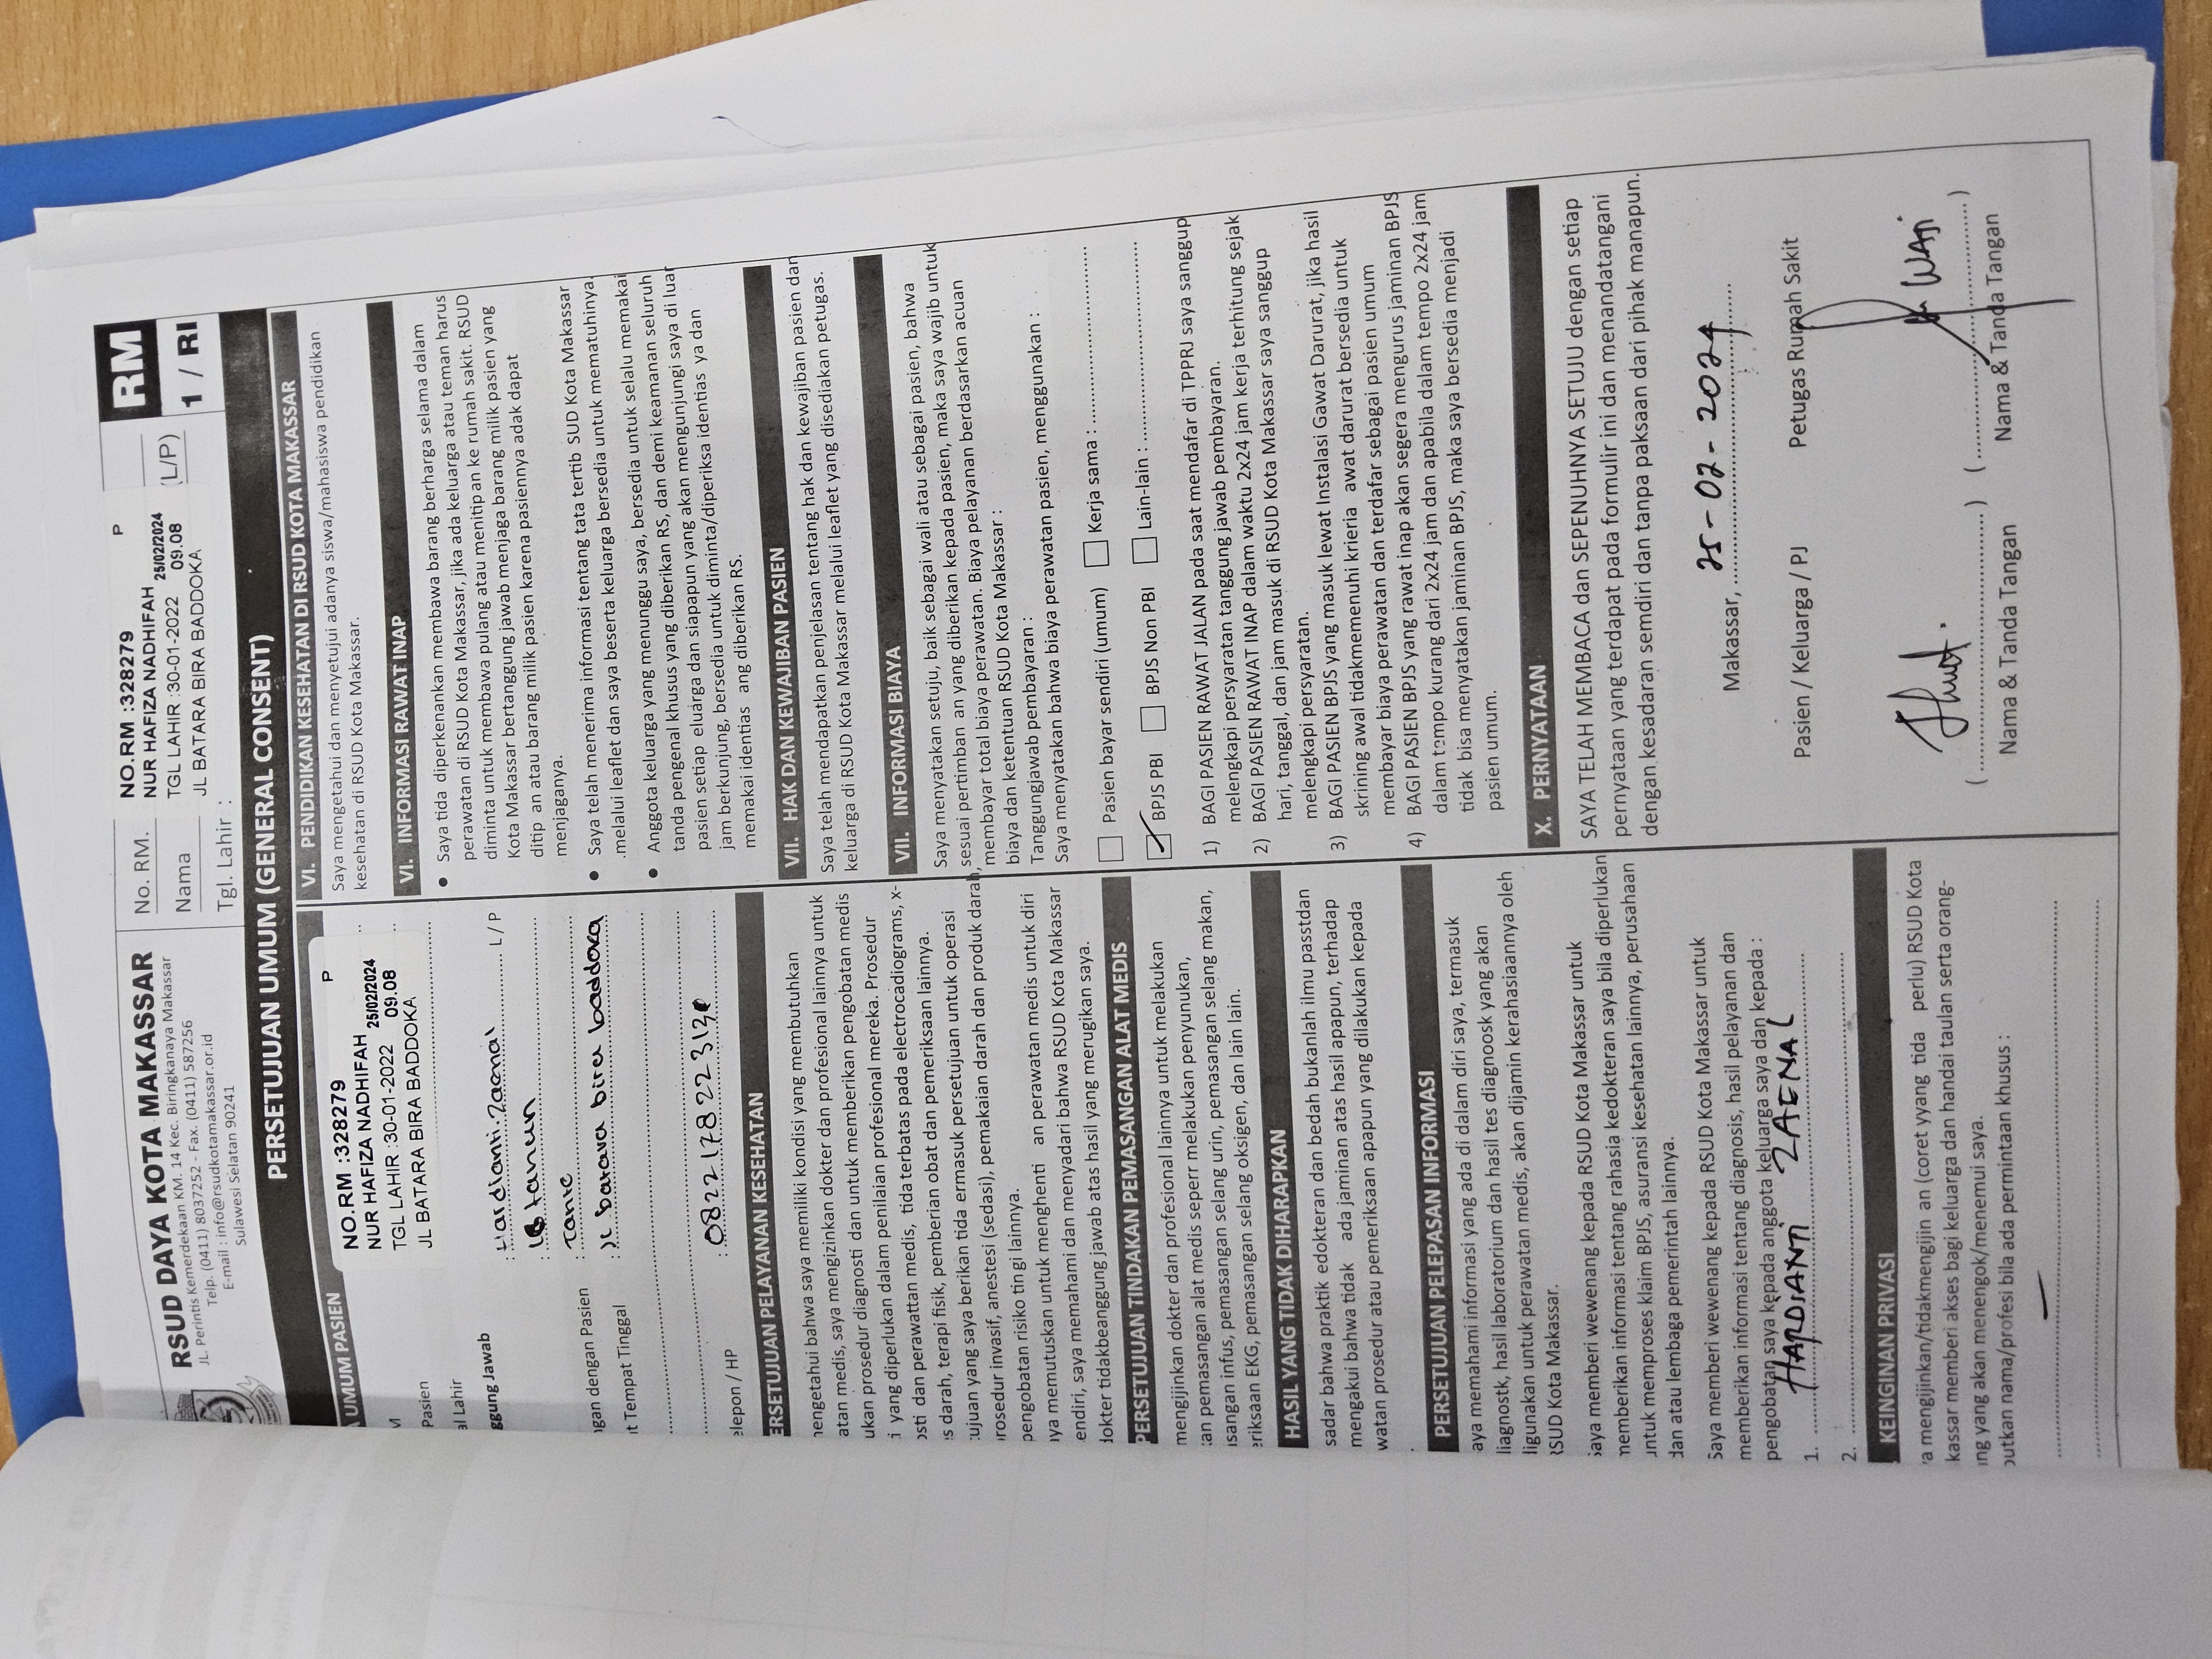 RSUD DAYA KOTA MAKASSAR
JL. Perintis Kemerdekaan KM. 14 Kec. Biringkanaya Makassar
Telp. (0411) 8037252 - Fax. (0411) 587256
E-mail : info@rsudkotamakassar.or.id
Sulawesi Selatan 90241
No. RM.
Nama
Tgl. Lahir :
NO.RM :328279 P
NUR HAFIZA NADHIFAH
TGL LAHIR :30-01-2022 25/02/2024 09.08
JL BATARA BIRA BADDOKA
(L/P)
RM
1 / RI
PERSETUJUAN UMUM (GENERAL CONSENT)
UMUM PASIEN
NO.RM :328279 P
NUR HAFIZA NADHIFAH
TGL LAHIR :30-01-2022 25/02/2024 09.08
JL BATARA BIRA BADDOKA
M
Pasien
al Lahir
ggung Jawab
: Hardianti.Zaenal L / P
: tahun
ngan dengan Pasien : Tante
t Tempat Tinggal : Jl batara bira baddoka
elepon / HP :
ERSETUJUAN PELAYANAN KESEHATAN
mengetahui bahwa saya memiliki kondisi yang membutuhkan
atan medis, saya mengizinkan dokter dan profesional lainnya untuk
ukan prosedur diagnosti dan untuk memberikan pengobatan medis
i yang diperlukan dalam penilaian profesional mereka. Prosedur
osti dan perawattan medis, tida terbatas pada electrocadiograms, x-
s darah, terapi fisik, pemberian obat dan pemeriksaan lainnya.
tujuan yang saya berikan tida ermasuk persetujuan untuk operasi
rosedur invasif, anestesi (sedasi), pemakaian darah dan produk darah,
pengobatan risiko tin gi lainnya.
aya memutuskan untuk menghenti an perawatan medis untuk diri
endiri, saya memahami dan menyadari bahwa RSUD Kota Makassar
dokter tidakbeanggung jawab atas hasil yang merugikan saya.
PERSETUJUAN TINDAKAN PEMASANGAN ALAT MEDIS
mengijinkan dokter dan profesional lainnya untuk melakukan
an pemasangan alat medis seperr melakukan penyunukan,
asangan infus, pemasangan selang urin, pemasangan selang makan,
eriksaan EKG, pemasangan selang oksigen, dan lain lain.
HASIL YANG TIDAK DIHARAPKAN
sadar bahwa praktik edokteran dan bedah bukanlah ilmu passtdan
mengakui bahwa tidak ada jaminan atas hasil apapun, terhadap
watan prosedur atau pemeriksaan apapun yang dilakukan kepada
.
PERSETUJUAN PELEPASAN INFORMASI
aya memahami informasi yang ada di dalam diri saya, termasuk
liagnostk, hasil laboratorium dan hasil tes diagnoosk yang akan
ligunakan untuk perawatan medis, akan dijamin kerahasiaannya oleh
RSUD Kota Makassar.
Saya memberi wewenang kepada RSUD Kota Makassar untuk
memberikan informasi tentang rahasia kedokteran saya bila diperlukan
untuk memproses klaim BPJS, asuransi kesehatan lainnya, perusahaan
dan atau lembaga pemerintah lainnya.
Saya memberi wewenang kepada RSUD Kota Makassar untuk
memberikan informasi tentang diagnosis, hasil pelayanan dan
pengobatan saya kepada anggota keluarga saya dan kepada :
1. HARDIANTI ZAENAL
2.
KEINGINAN PRIVASI
ya mengijinkan/tidakmengijin an (coret yyang tida perlu) RSUD Kota
kassar memberi akses bagi keluarga dan handai taulan serta orang-
ng yang akan menengok/menemui saya.
butkan nama/profesi bila ada permintaan khusus :
—
VI. PENDIDIKAN KESEHATAN DI RSUD KOTA MAKASSAR
Saya mengetahui dan menyetujui adanya siswa/mahasiswa pendidikan
kesehatan di RSUD Kota Makassar.
VI. INFORMASI RAWAT INAP
• Saya tida diperkenankan membawa barang berharga selama dalam
perawatan di RSUD Kota Makassar, jika ada keluarga atau teman harus
diminta untuk membawa pulang atau menitip an ke rumah sakit. RSUD
Kota Makassar bertanggung jawab menjaga barang milik pasien yang
ditip an atau barang milik pasien karena pasiennya adak dapat
menjaganya.
• Saya telah menerima informasi tentang tata tertib SUD Kota Makassar
.melalui leaflet dan saya beserta keluarga bersedia untuk mematuhinya.
• Anggota keluarga yang menunggu saya, bersedia untuk selalu memakai
tanda pengenal khusus yang diberikan RS, dan demi keamanan seluruh
pasien setiap eluarga dan siapapun yang akan mengunjungi saya di luar
jam berkunjung, bersedia untuk diminta/diperiksa identias ya dan
memakai identias ang diberikan RS.
VII. HAK DAN KEWAJIBAN PASIEN
Saya telah mendapatkan penjelasan tentang hak dan kewajiban pasien dan
keluarga di RSUD Kota Makassar melalui leaflet yang disediakan petugas.
VII. INFORMASI BIAYA
Saya menyatakan setuju, baik sebagai wali atau sebagai pasien, bahwa
sesuai pertimban an yang diberikan kepada pasien, maka saya wajib untuk
membayar total biaya perawatan. Biaya pelayanan berdasarkan acuan
biaya dan ketentuan RSUD Kota Makassar :
Tanggungjawab pembayaran :
Saya menyatakan bahwa biaya perawatan pasien, menggunakan :
Pasien bayar sendiri (umum) Kerja sama :
BPJS PBI BPJS Non PBI Lain-lain :
1) BAGI PASIEN RAWAT JALAN pada saat mendafar di TPPRJ saya sanggup
melengkapi persyaratan tanggung jawab pembayaran.
2) BAGI PASIEN RAWAT INAP dalam waktu 2x24 jam kerja terhitung sejak
hari, tanggal, dan jam masuk di RSUD Kota Makassar saya sanggup
melengkapi persyaratan.
3) BAGI PASIEN BPJS yang masuk lewat Instalasi Gawat Darurat, jika hasil
skrining awal tidakmemenuhi krieria awat darurat bersedia untuk
membayar biaya perawatan dan terdafar sebagai pasien umum
4) BAGI PASIEN BPJS yang rawat inap akan segera mengurus jaminan BPJS
dalam tempo kurang dari 2x24 jam dan apabila dalam tempo 2x24 jam
tidak bisa menyatakan jaminan BPJS, maka saya bersedia menjadi
pasien umum.
X. PERNYATAAN
SAYA TELAH MEMBACA dan SEPENUHNYA SETUJU dengan setiap
pernyataan yang terdapat pada formulir ini dan menandatangani
dengan kesadaran semdiri dan tanpa paksaan dari pihak manapun.
Makassar, 25-02-2024
Pasien / Keluarga / PJ Petugas Rumah Sakit
( ) ( )
Nama & Tanda Tangan Nama & Tanda Tangan